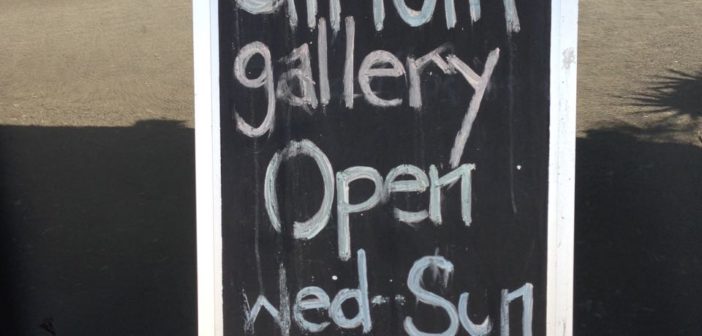 gallery
Open
Wed-Sun